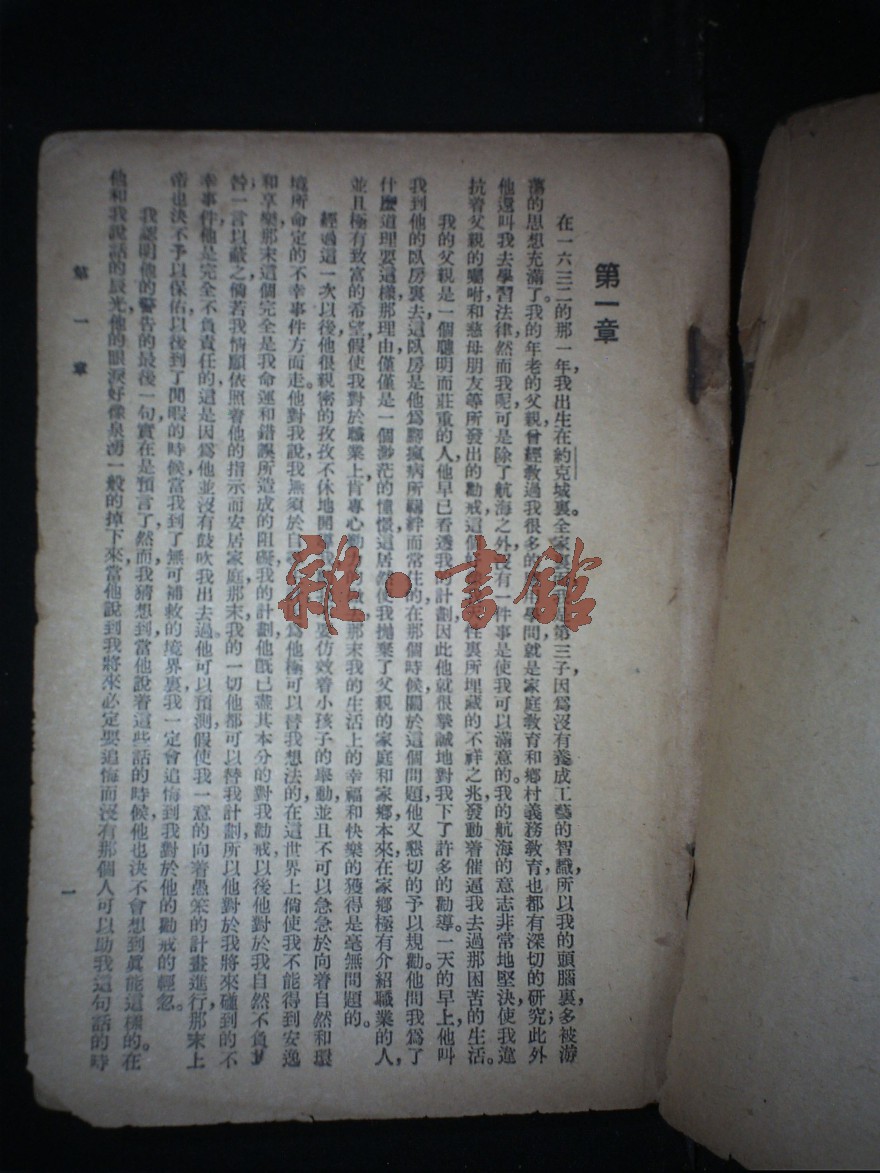 第一章
在一六三二的那一年，我出生在約克城裏。全家裏第三子，因爲沒有養成工藝的智識，所以我的頭腦裏多被游
蕩的思想充滿了。我的年老的父親曾經教過我很多的學問，就是家庭教育和鄉村義務教育也都有深切的研究；此外
他還叫我去學習法律。然而我呢，可是除了航海之外，沒有一件事是使我可以滿意的。我的航海的意志非常地堅決，使我違
抗着父親的囑咐和慈母朋友等所發出的勸戒，這個性裏所埋藏的不祥之兆，發動着催逼我去過那困苦的生活。
我的父親是一個聰明而莊重的人，他早已看透我計劃，因此他就很摯誠地對我下了許多的勸導。一天的早上，他叫
我到他的臥房裏去，這臥房是他爲腳瘋病所羈絆而常住的，在那個時候，關於這個問題，他又懇切的予以規勸。他問我爲了
什麽道理要這樣，那理由僅僅是一個渺茫的憧憬，這居使我拋棄了父親的家庭和家鄉，本來在家鄉極有介紹職業的人，
並且極有致富的希望，假使我對於職業上肯專心勤，那末我的生活上的幸福和快樂的獲得是毫無問題的。
經過這一次以後，他很親密的孜孜不休地開導我，要仿效着小孩子的舉動，並且不可以急急於向着自然和環
境所命定的不幸事件方面走。他對我說，我無須於自爲他極可以替我想法的，在這世界上倘使我不能得到安逸
和享樂，那末這個完全是我命運和錯誤所造成的阻礙我的計劃，他旣已盡其本分的對我勸戒，以後他對於我自然不負
咎，一言以蔽之，倘若我情願依照着他的指示而安居家庭，那末我的一切他都可以替我計劃，所以他對於我將來碰到的不
幸事件，他是完全不負責任的，這是因爲他並沒有鼓吹我出去過，他可以預測假使我一意的向着愚笨的計畫進行，那末上
帝也決不予以保佑，以後到了閒暇的時候，當我到了無可補救的境界裏，我一定會追悔到我對於他的勸戒的輕忽。
我認明他的警告的最後一句實在是預言了，然而我猜想到當他說着這些話的時候，他也決不會想到眞能這樣的。在
他和我說話的辰光，他的眼淚好像泉湧一般的掉下來，當他說到我將來必定要追悔而沒有那個人可以助我這句話的時
第一章
一
雜·書館